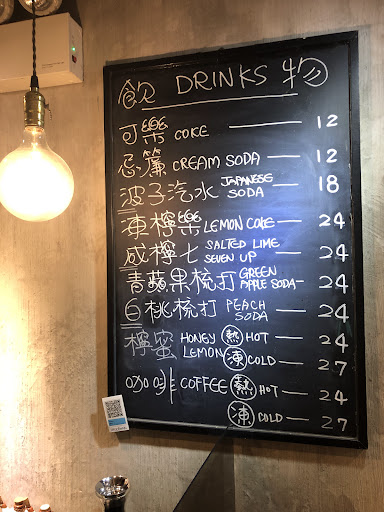 飲 DRINKS 物
可樂 COKE — 12
忌簾 CREAM SODA — 12
波子汽水 JAPANESE SODA — 18
凍檸樂 LEMON COKE — 24
咸檸七 SALTED LIME SEVEN UP — 24
青蘋果梳打 GREEN APPLE SODA — 24
白桃梳打 PEACH SODA — 24
檸蜜 HONEY LEMON 熱 HOT — 24
凍 COLD — 27
COFFEE 熱 HOT — 24
凍 COLD — 27